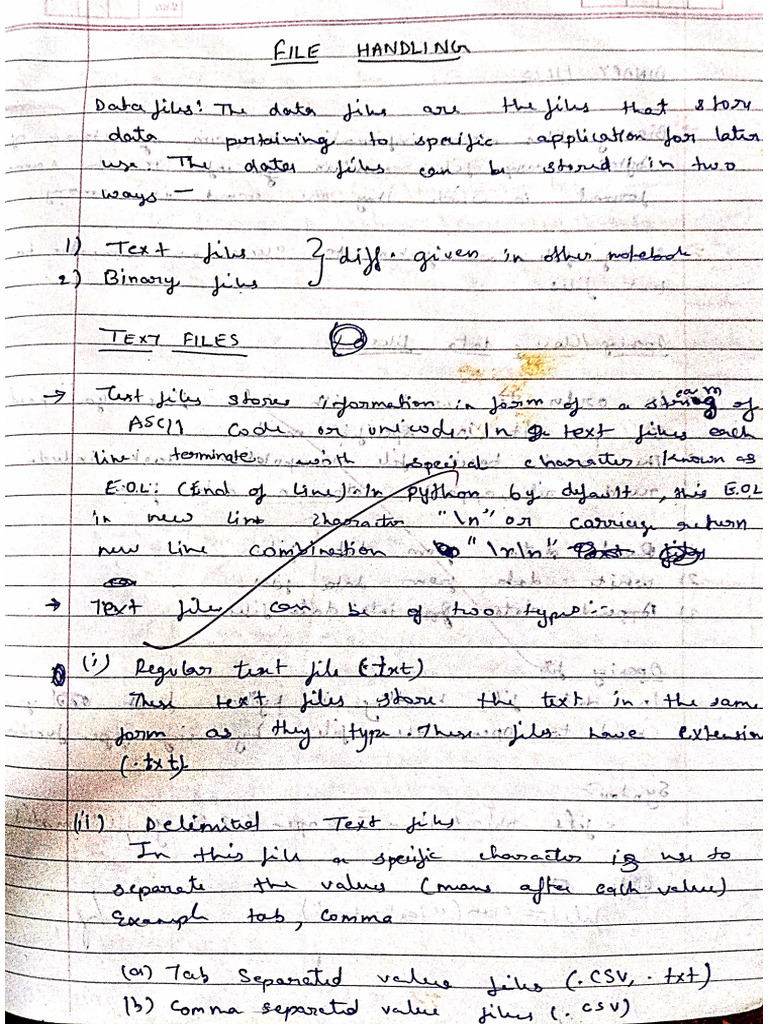 FILE HANDLING
Data files: The data files are the files that store
data pertaining to specific application for later
use. The data files can be stored in two
ways —
1) Text files } diff. given in other notebook
2) Binary files
TEXT FILES
→ Text files stores information in form of a stream of
ASCII code or unicode. In text files each
line terminate with special character known as
E.O.L: (End of Line) In python by default, this E.O.L
in new line character "\n" or carriage return
new line combination "\r\n"
→ Text files can be of two types:-
(i) Regular text file (.txt)
These text files store the text in the same
form as they type. These files have extension
(.txt)
(ii) Delimited Text files
In this file a specific character is use to
separate the values (means after each value)
Example tab, comma
(a) Tab Separated value files (.CSV, .txt)
(b) Comma separated value files (.CSV)